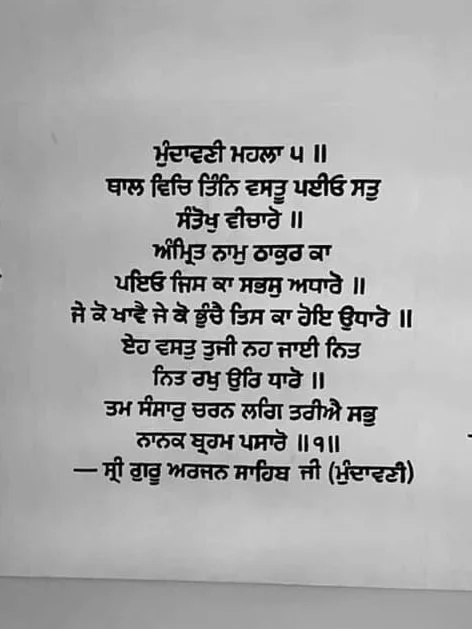 ਮੁੰਦਾਵਣੀ ਮਹਲਾ ੫ ॥
ਥਾਲ ਵਿਚਿ ਤਿੰਨਿ ਵਸਤੂ ਪਈਓ ਸਤੁ
ਸੰਤੋਖੁ ਵੀਚਾਰੋ ॥
ਅੰਮ੍ਰਿਤ ਨਾਮੁ ਠਾਕੁਰ ਕਾ
ਪਇਓ ਜਿਸ ਕਾ ਸਭਸੁ ਅਧਾਰੋ ॥
ਜੇ ਕੋ ਖਾਵੈ ਜੇ ਕੋ ਭੁੰਚੈ ਤਿਸ ਕਾ ਹੋਇ ਉਧਾਰੋ ॥
ਏਹ ਵਸਤੁ ਤੁਜੀ ਨਹ ਜਾਈ ਨਿਤ
ਨਿਤ ਰਖੁ ਉਰਿ ਧਾਰੋ ॥
ਤਮ ਸੰਸਾਰੁ ਚਰਨ ਲਗਿ ਤਰੀਐ ਸਭੁ
ਨਾਨਕ ਬ੍ਰਹਮ ਪਸਾਰੋ ॥੧॥
— ਸ੍ਰੀ ਗੁਰੂ ਅਰਜਨ ਸਾਹਿਬ ਜੀ (ਮੁੰਦਾਵਣੀ)